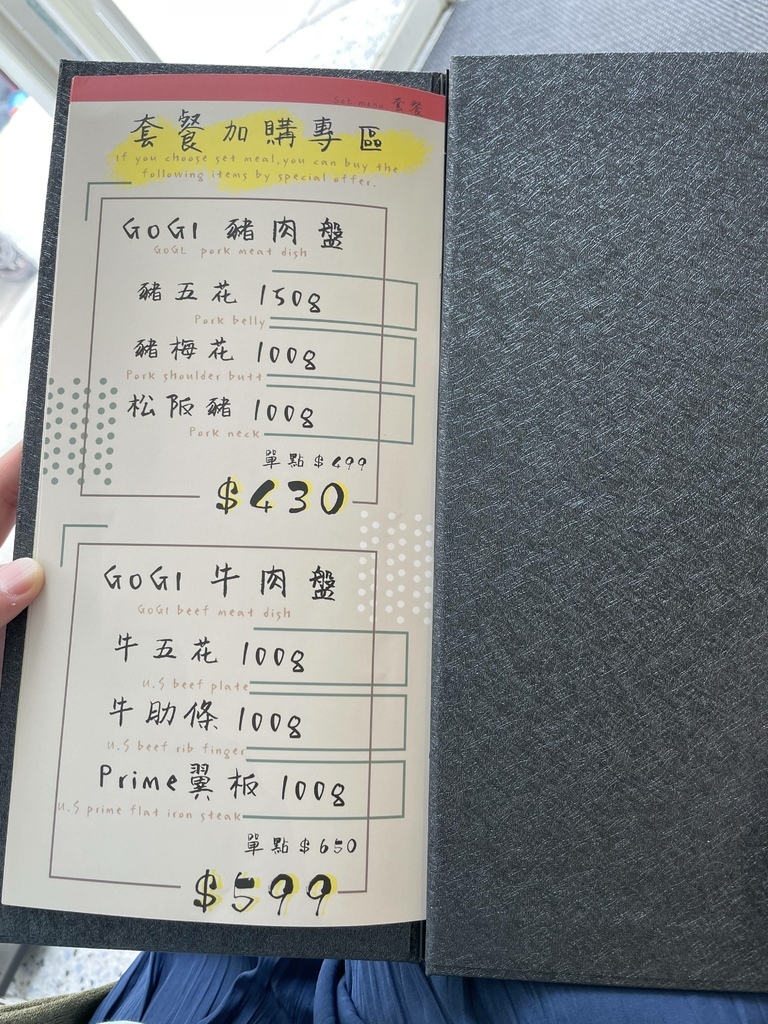 Set menu 套餐
套餐加購專區
If you choose set meal, you can buy the
following items by special offer.
GOGI 豬肉盤
GOGI pork meat dish
豬五花 150g
Pork belly
豬梅花 100g
Pork shoulder butt
松阪豬 100g
Pork neck
單點 $499
$430
GOGI 牛肉盤
GOGI beef meat dish
牛五花 100g
U.S beef plate
牛助條 100g
U.S beef rib finger
Prime翼板 100g
U.S prime flat iron steak
單點 $650
$599